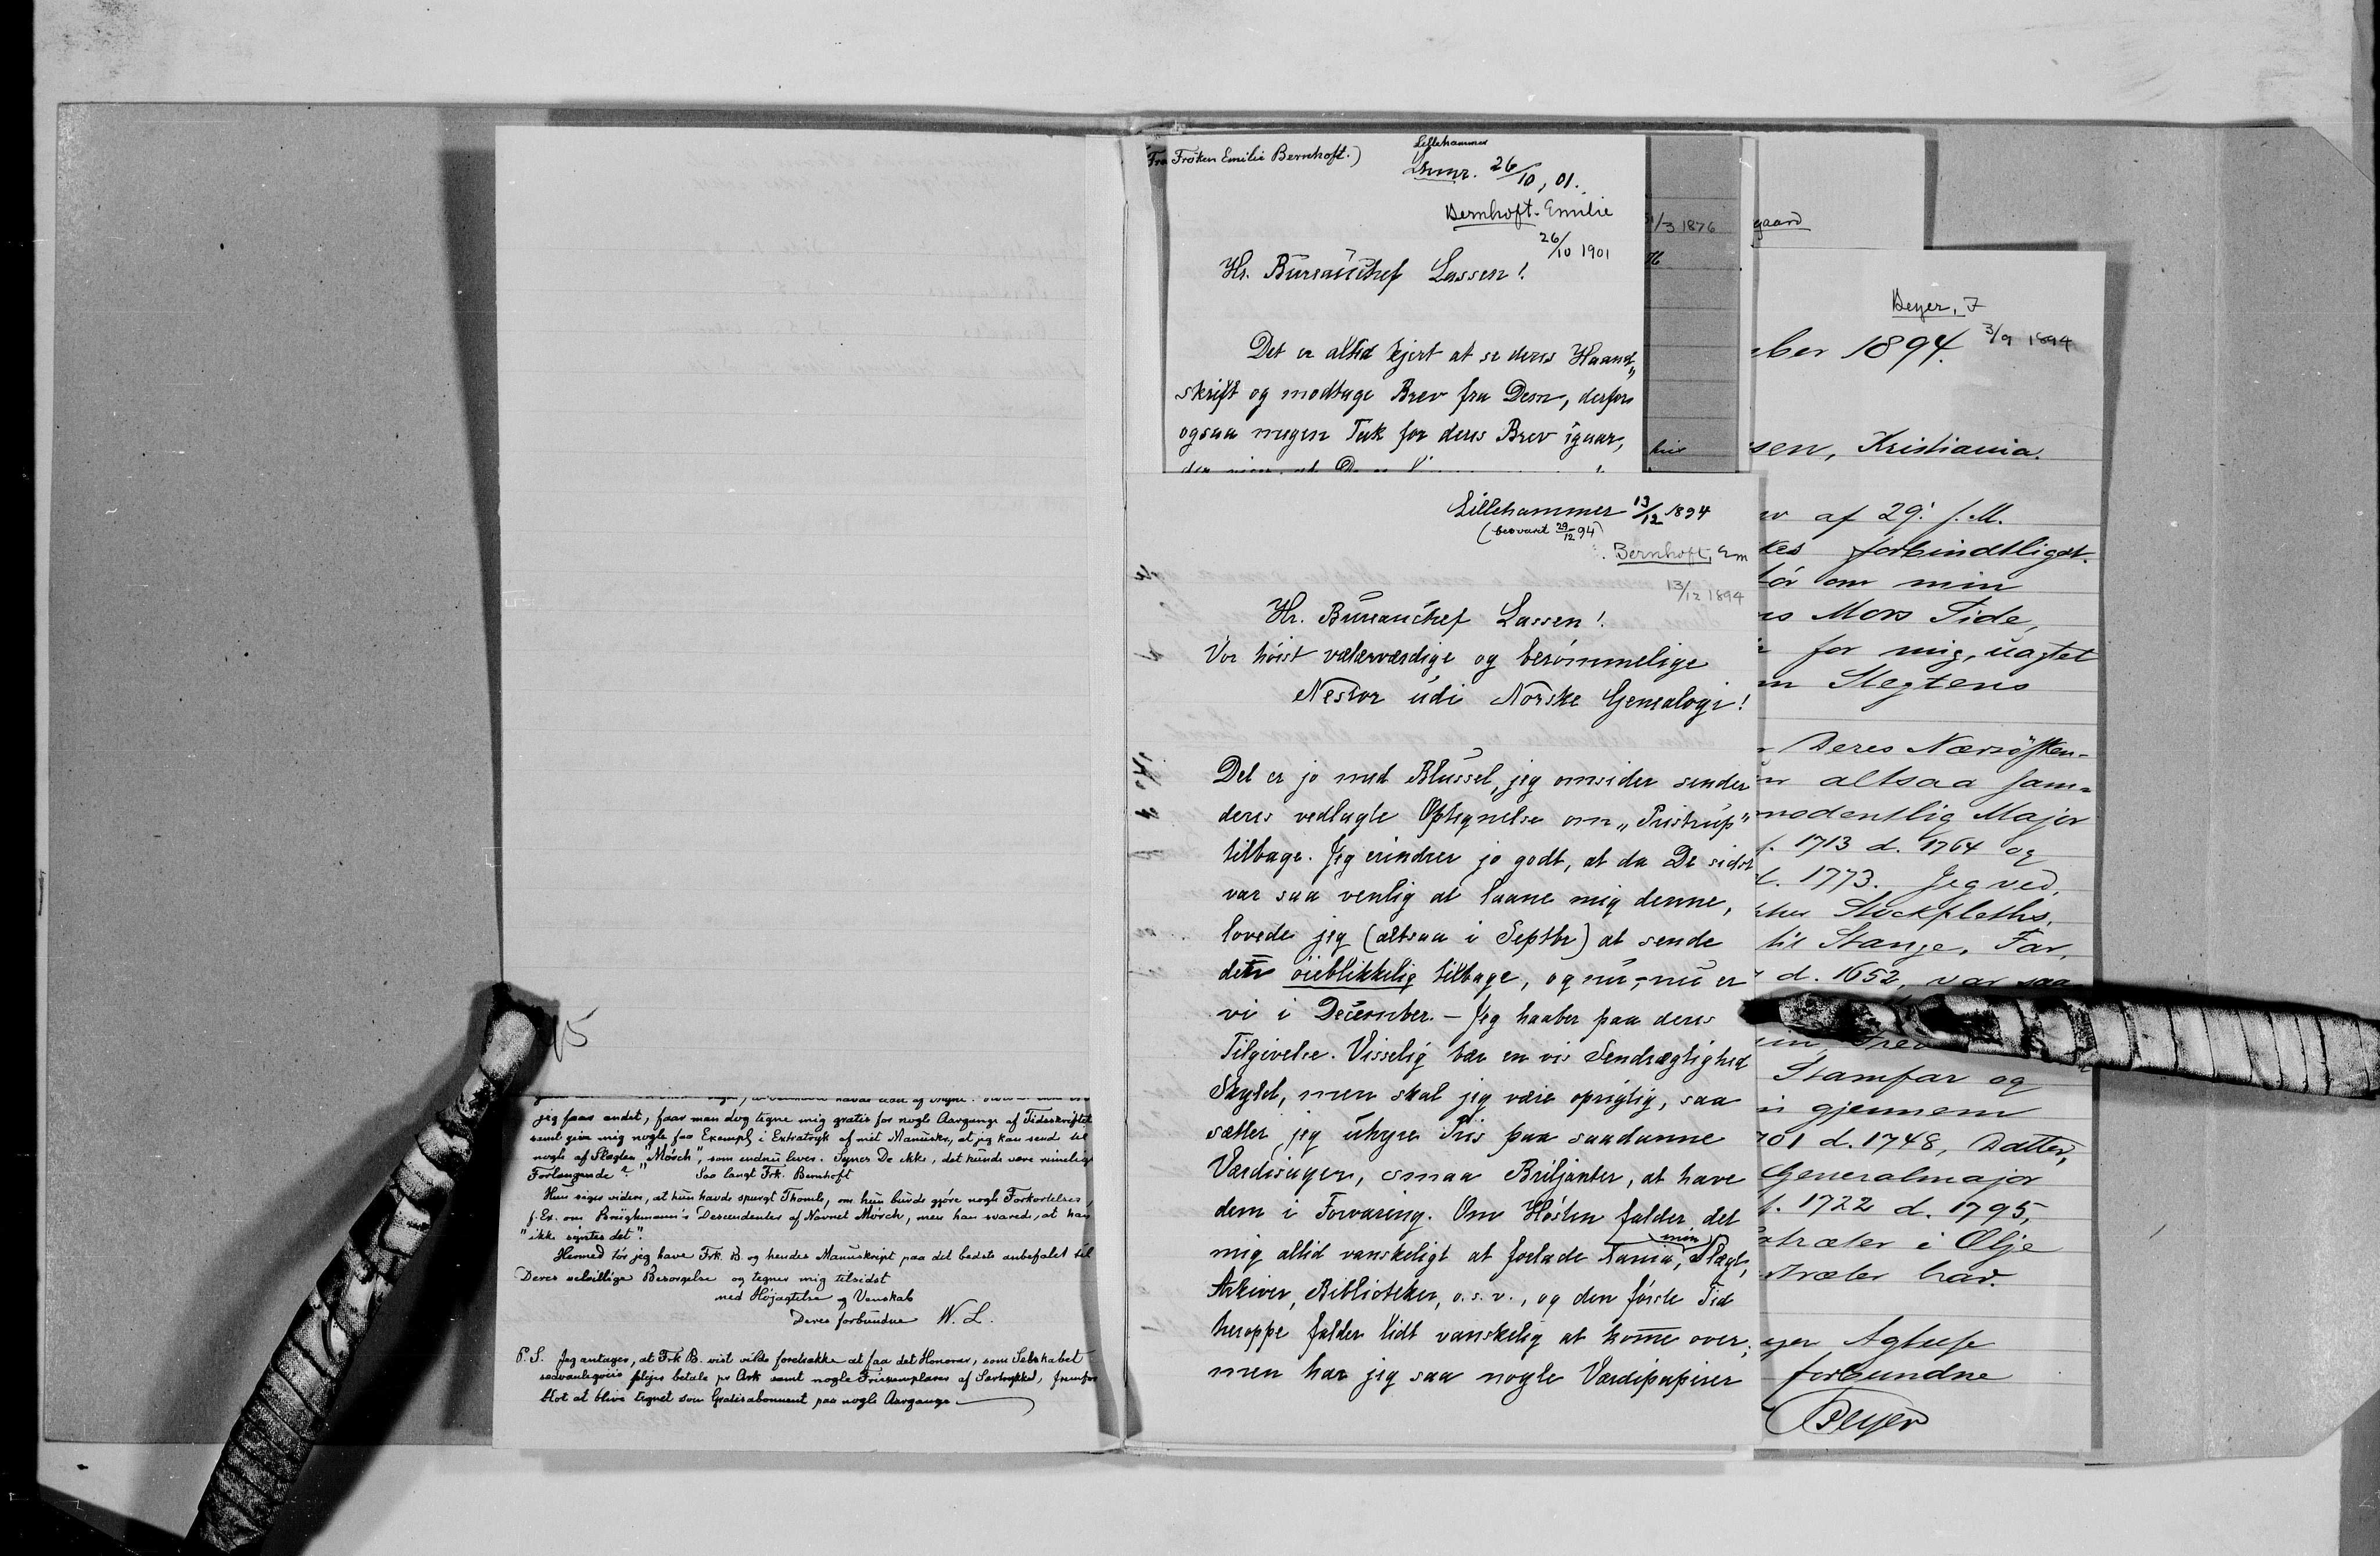 jeg faar andet, faar man dog tegne mig gratis for nogle Aargange af Tidsskriftet
samt give mig nogle faa Exempl. i Extratryk af mit Manuskr., at jeg kan sende til
nogle af Slægten "Mörch", som endnu lever. Synes De ikke, det kunde være rimeligt
Forlangende?" Saa langt Frk. Bernhoft
Hun siger videre, at hun havde spurgt Thomle, om hun burde gjöre nogle Forkortelser,
f. Ex. om Brüghmann's Descendenter af Navnet Mörch, men han svarede, at han
"ikke syntes det".
Hermed tör jeg have Frk. B. og hendes Manuskript paa det bedste anbefalet til
Deres velvillige Besørgelse og tegner mig tilsidst
med Højagtelse og Venskab
Deres forbundne W. L.
P. S. Jeg antager, at Frk B. vist vilde foretrække at faa det Honorar, som Selskabet
sædvanligviis plejer betale pr Ark samt nogle Friexemplarer af Særtrykket, fremfor
blot at blive tegnet som Gratisabonnent paa nogle Aargange
Fra Fröken Emilie Bernhoft.)
Lillehammer
Lhmr. 26/10, 01.
Bernhoft. Emilie
26/10 1901
Hr. Bureauchef Lassen!
Det er altid kjert at se deres Haand„
skrift og modtage Brev fra Dem, derfor
ogsaa megen Tak for deres Brev igaar,
/3 1876
gaard
Lillehammer 13/12 1894
(besvaret 29/12 94)
Bernhoft, Em
13/12 1894
Hr. Bureauchef Lassen!
Vor höist velærværdige og berömmelige
Nestor udi Norske Genealogi!
Det er jo med Blussel, jeg omsider sender
deres vedlagte Optegnelse om „Tristrup"
tilbage. Jeg erindrer jo godt, at da De sidst
var saa venlig at laane mig denne,
lovede jeg (altsaa i Septbr) at sende
den öieblikkelig tilbage, og nu,- nu er
vi i December. - Jeg haaber paa deres
Tilgivelse. Visselig bær en vis Sendrægtighed
Skyld, men skal jeg være oprigtig, saa
sætter jeg uhyre Pris paa saadanne
Værdisager, smaa Briljanter, at have
dem i Forvaring. Om Hösten falder det
mig altid vanskeligt at forlade Xania, min Slægt,
Arkiver, Biblioteker, o. s. v., og den förste Tid
heroppe falder lidt vanskelig at komme over;
men har jeg saa nogle Værdipapirer
Beyer, F
3/9 1894
ber 1894.
sen, Kristiania.
af 29. f. M.
kes forbindtligst.
om min
Mors Side,
for mig, uagtet
Slegtens
Deres Nærsösken-
altsaa sam-
modentlig Major
f. 1713 d. 1764 og
d. 1773. Jeg ved,
Stockfleths,
til Stange. Far,
d. 1652, var saa
Stamfar og
gjennem
701 d. 1748, Datter,
Generalmajor
f. 1722 d. 1795,
træter i Olje
træter har.
Agtelse
forbundne
Beyer